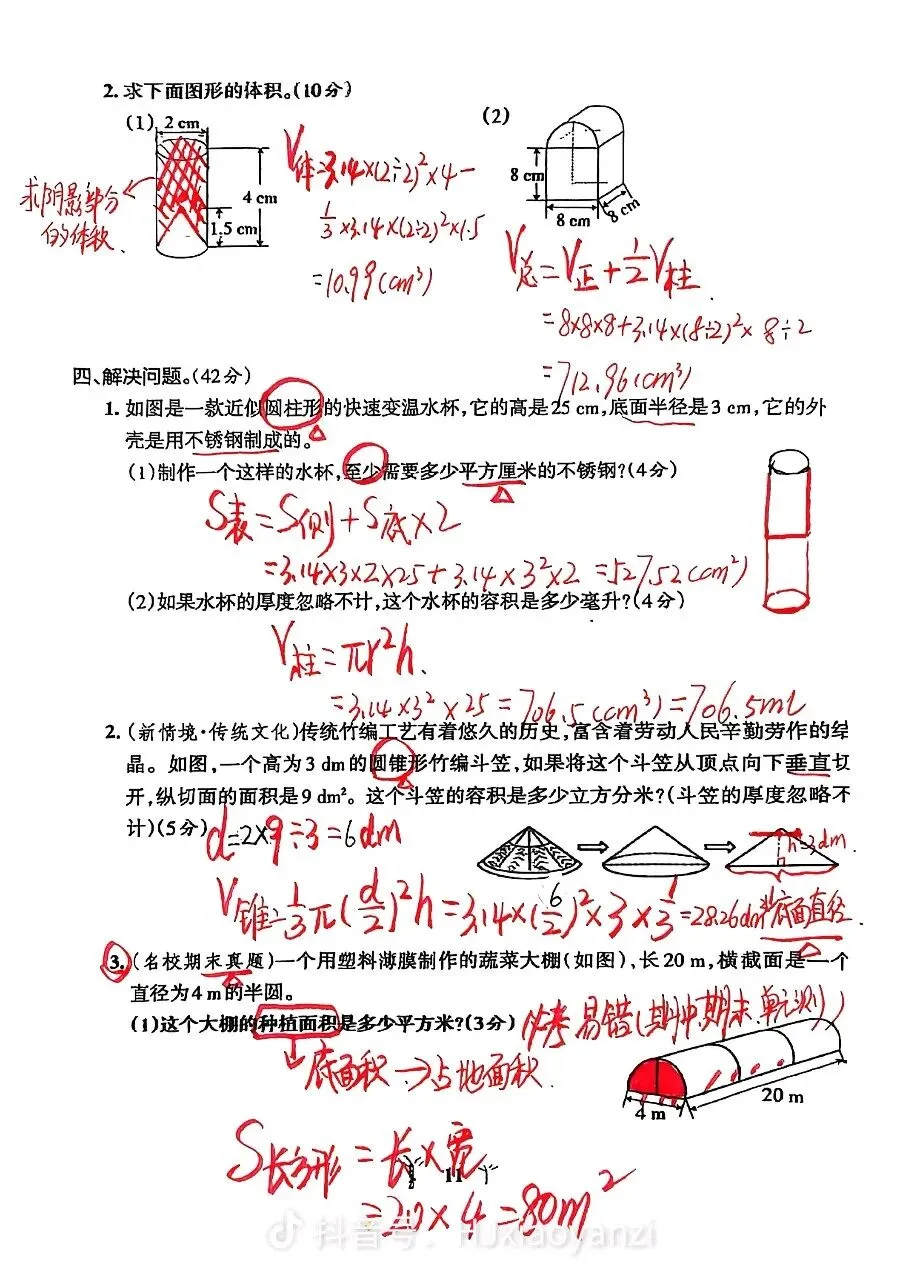 2.求下面图形的体积。(10分)
(1) 2 cm
4 cm
1.5 cm
求阴影部分
的体积.
V体=3.14×(2÷2)²×4-
1/3×3.14×(2÷2)²×1.5
=10.99(cm³)
(2)
8 cm
8 cm
8 cm
V总=V正+1/2V柱
=8×8×8+3.14×(8÷2)²×8÷2
=712.96(cm³)
四、解决问题。(42分)
1.如图是一款近似圆柱形的快速变温水杯,它的高是25 cm,底面半径是3 cm,它的外
壳是用不锈钢制成的。
(1)制作一个这样的水杯,至少需要多少平方厘米的不锈钢?(4分)
S表=S侧+S底×2
=3.14×3×2×25+3.14×3²×2=527.52(cm²)
(2)如果水杯的厚度忽略不计,这个水杯的容积是多少毫升?(4分)
V柱=πr²h.
=3.14×3²×25=706.5(cm³)=706.5ml
2.(新情境·传统文化)传统竹编工艺有着悠久的历史,富含着劳动人民辛勤劳作的结
晶。如图,一个高为3 dm的圆锥形竹编斗笠,如果将这个斗笠从顶点向下垂直切
开,纵切面的面积是9 dm²。这个斗笠的容积是多少立方分米?(斗笠的厚度忽略不
计)(5分)
d=2×9÷3=6dm
h=3dm.
V锥=1/3π(d/2)²h=3.14×(6/2)²×3×1/3=28.26dm³
底面直径
3.(名校期末真题)一个用塑料薄膜制作的蔬菜大棚(如图),长20 m,横截面是一个
直径为4 m的半圆。
(1)这个大棚的种植面积是多少平方米?(3分)
必考易错(期中期末单元测)
底面积→占地面积.
4 m
20 m
S长方形=长×宽
11
=20×4=80m²
抖音号: HJxiaoyanzi